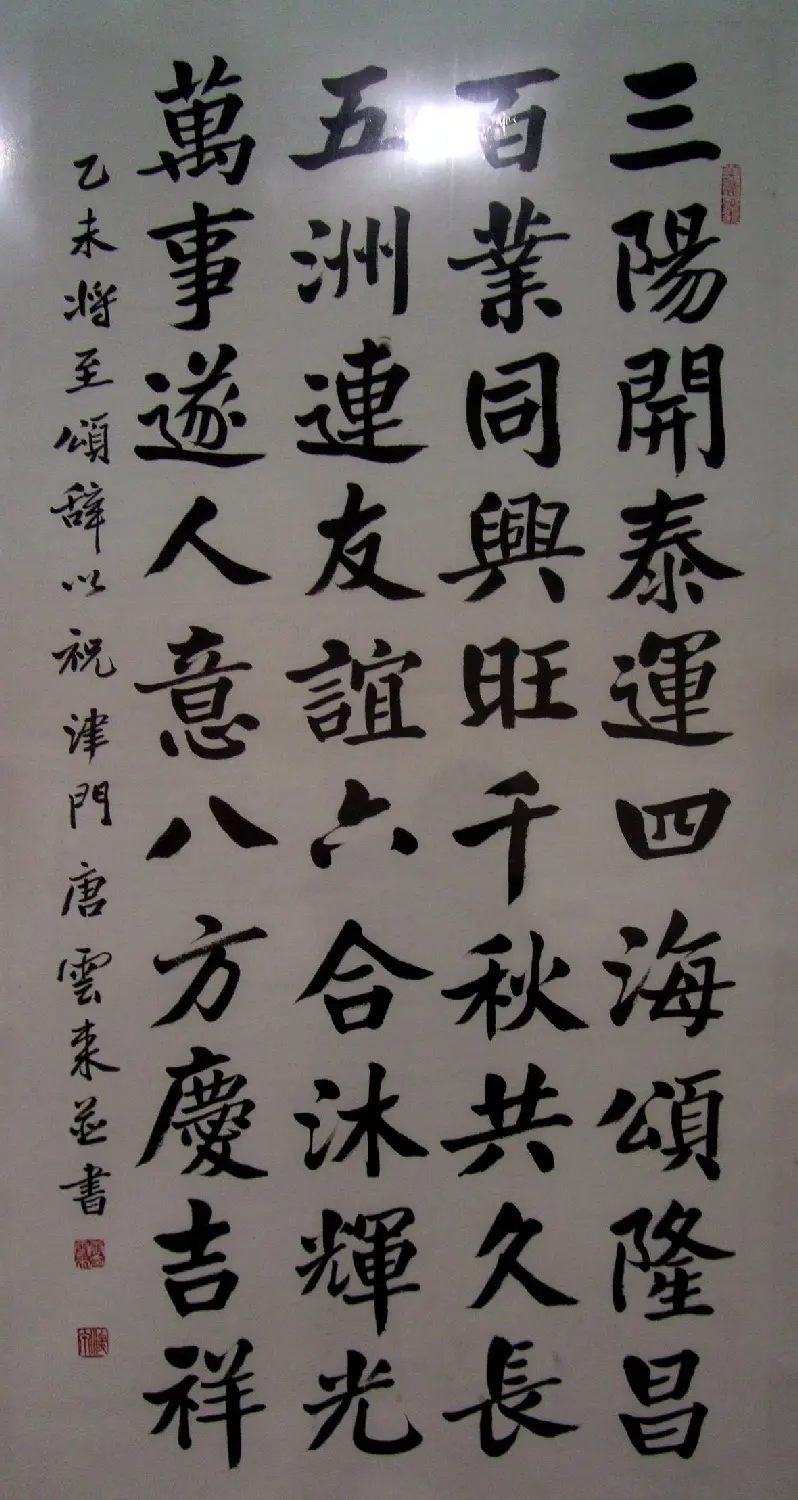 三陽開泰運四海頌隆昌
百業同興旺千秋共久長
五洲連友誼六合沐輝光
萬事遂人意八方慶吉祥
乙未将至頌辞以祝津門唐雲来並書